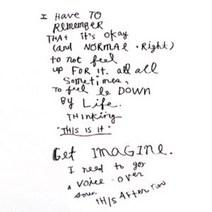 I HAVE TO
REMEMBER
THAT it's OKAY
(and NORMAL + Right)
to not feel
up FOR it. at all
Sometimes,
TO feel be DOWN
By Life.
THINKING
"THIS IS IT"
Get IMAGINE.
I need to go
a voice-over
down THIS AFTER